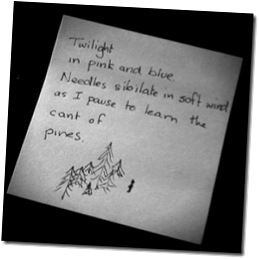 Twilight
in pink and blue.
Needles sibilate in soft wind
as I pause to learn the
cant of
pines.